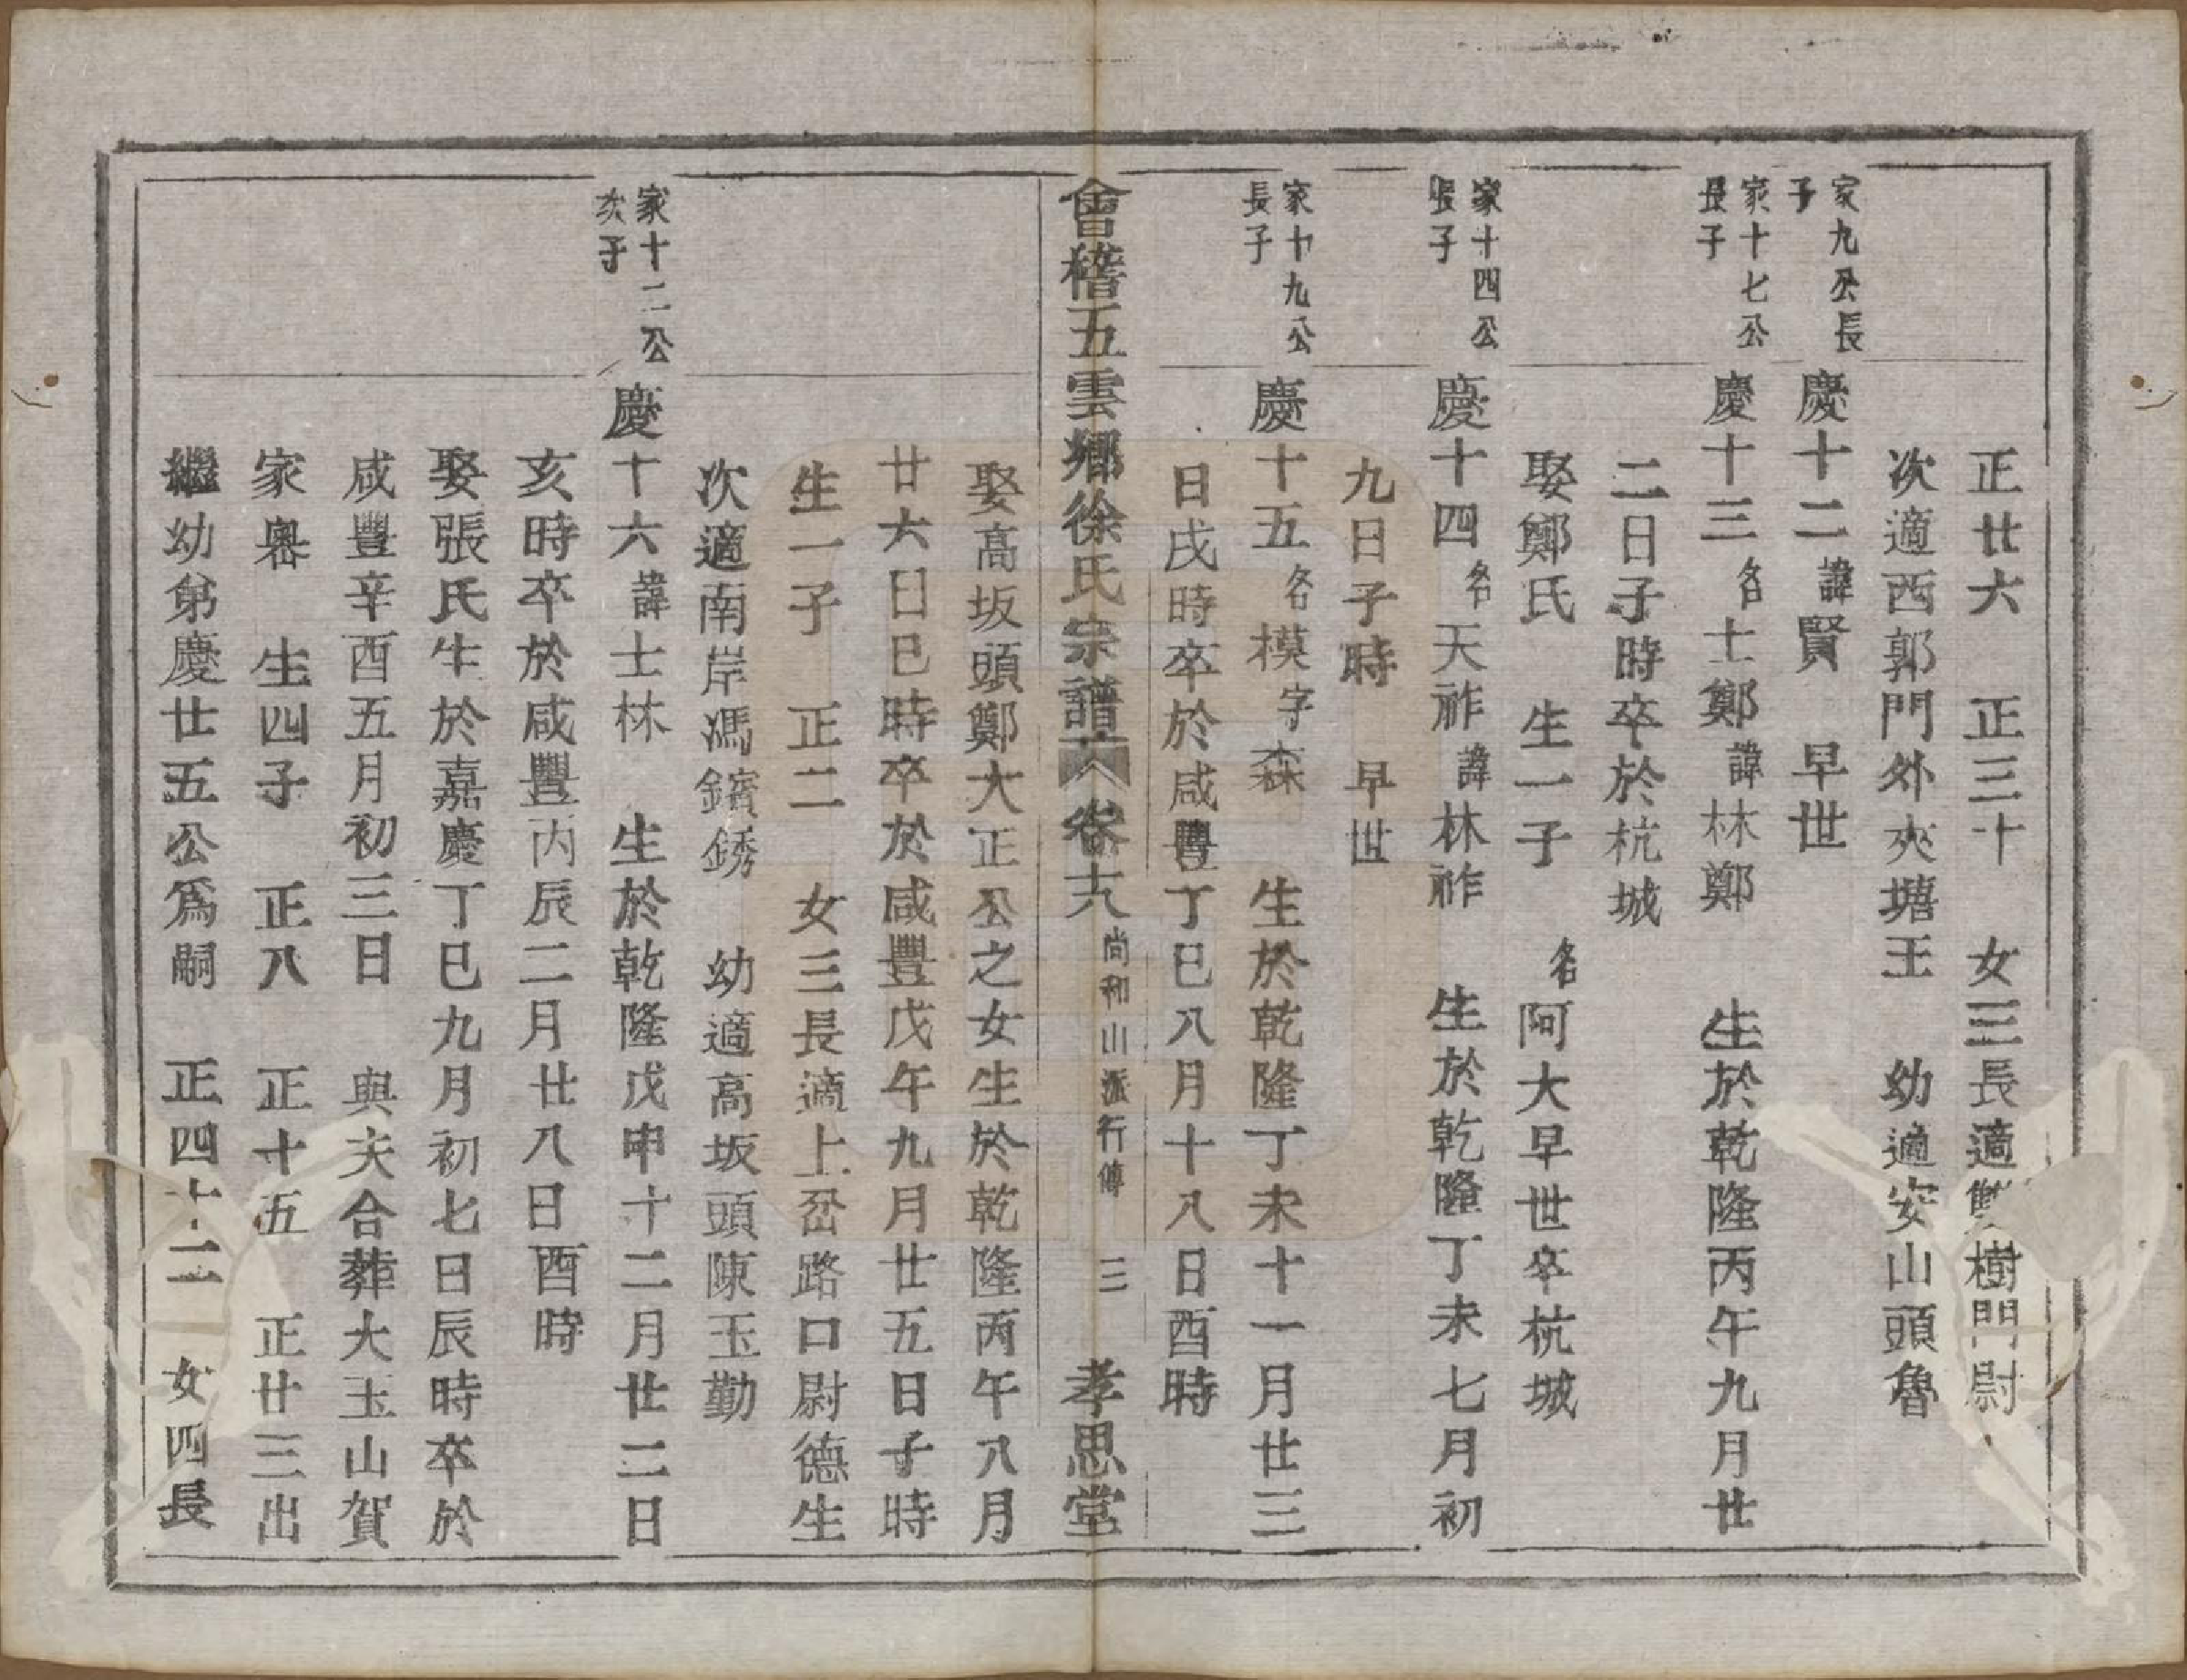 正廿六　正三十　女三長適雙樹門尉
次適西郭門外夾塘王　幼適安山頭魯
家九公長子
慶十二諱賢　早世
家十七公長子
慶十三名士鄭諱林鄭　生於乾隆丙午九月廿
二日子時卒於杭城
娶鄭氏　生一子　名阿大早世卒杭城
家十四公長子
慶十四名天祚諱林祚　生於乾隆丁未七月初
九日子時　早世
家十九公長子
慶十五名模字森　生於乾隆丁未十一月廿三
日戌時卒於咸豐丁巳八月十八日酉時
會稽五雲鄉徐氏宗譜　卷十八　尚和山派行傳　三　孝思堂
娶高坂頭鄭大正公之女生於乾隆丙午八月
廿六日巳時卒於咸豐戊午九月廿五日子時
生一子　正二　女三長適上岙路口尉德生
次適南岸馮鑌銹　幼適高坂頭陳玉勤
家十二公次子
慶十六諱士林　生於乾隆戊申十二月廿二日
亥時卒於咸豐丙辰二月廿八日酉時
娶張氏生於嘉慶丁巳九月初七日辰時卒於
咸豐辛酉五月初三日　與夫合葬大玉山賀
家嶴　生四子　正八　正十五　正廿三出
繼幼弟慶廿五公爲嗣　正四十二　女四長